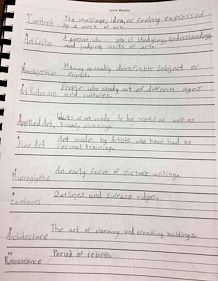 Content The message, idea, or feeling expressed
by a work of art.
Art Critic A person who's job is studying, understanding,
and judging works of arts.
Having a readily identifiable subject or
object.
Art Historian People who study art of different ages
and cultures.
Applied Art Works of art made to be useful as well as
visually pleasing.
Fine Art Art made by artists who have had no
formal training.
Hieroglyphic An early form of picture writing.
Contours Outlines and surface ridges.
Architecture The act of planning and creating buildings.
10
Renaissance Period of rebirth.